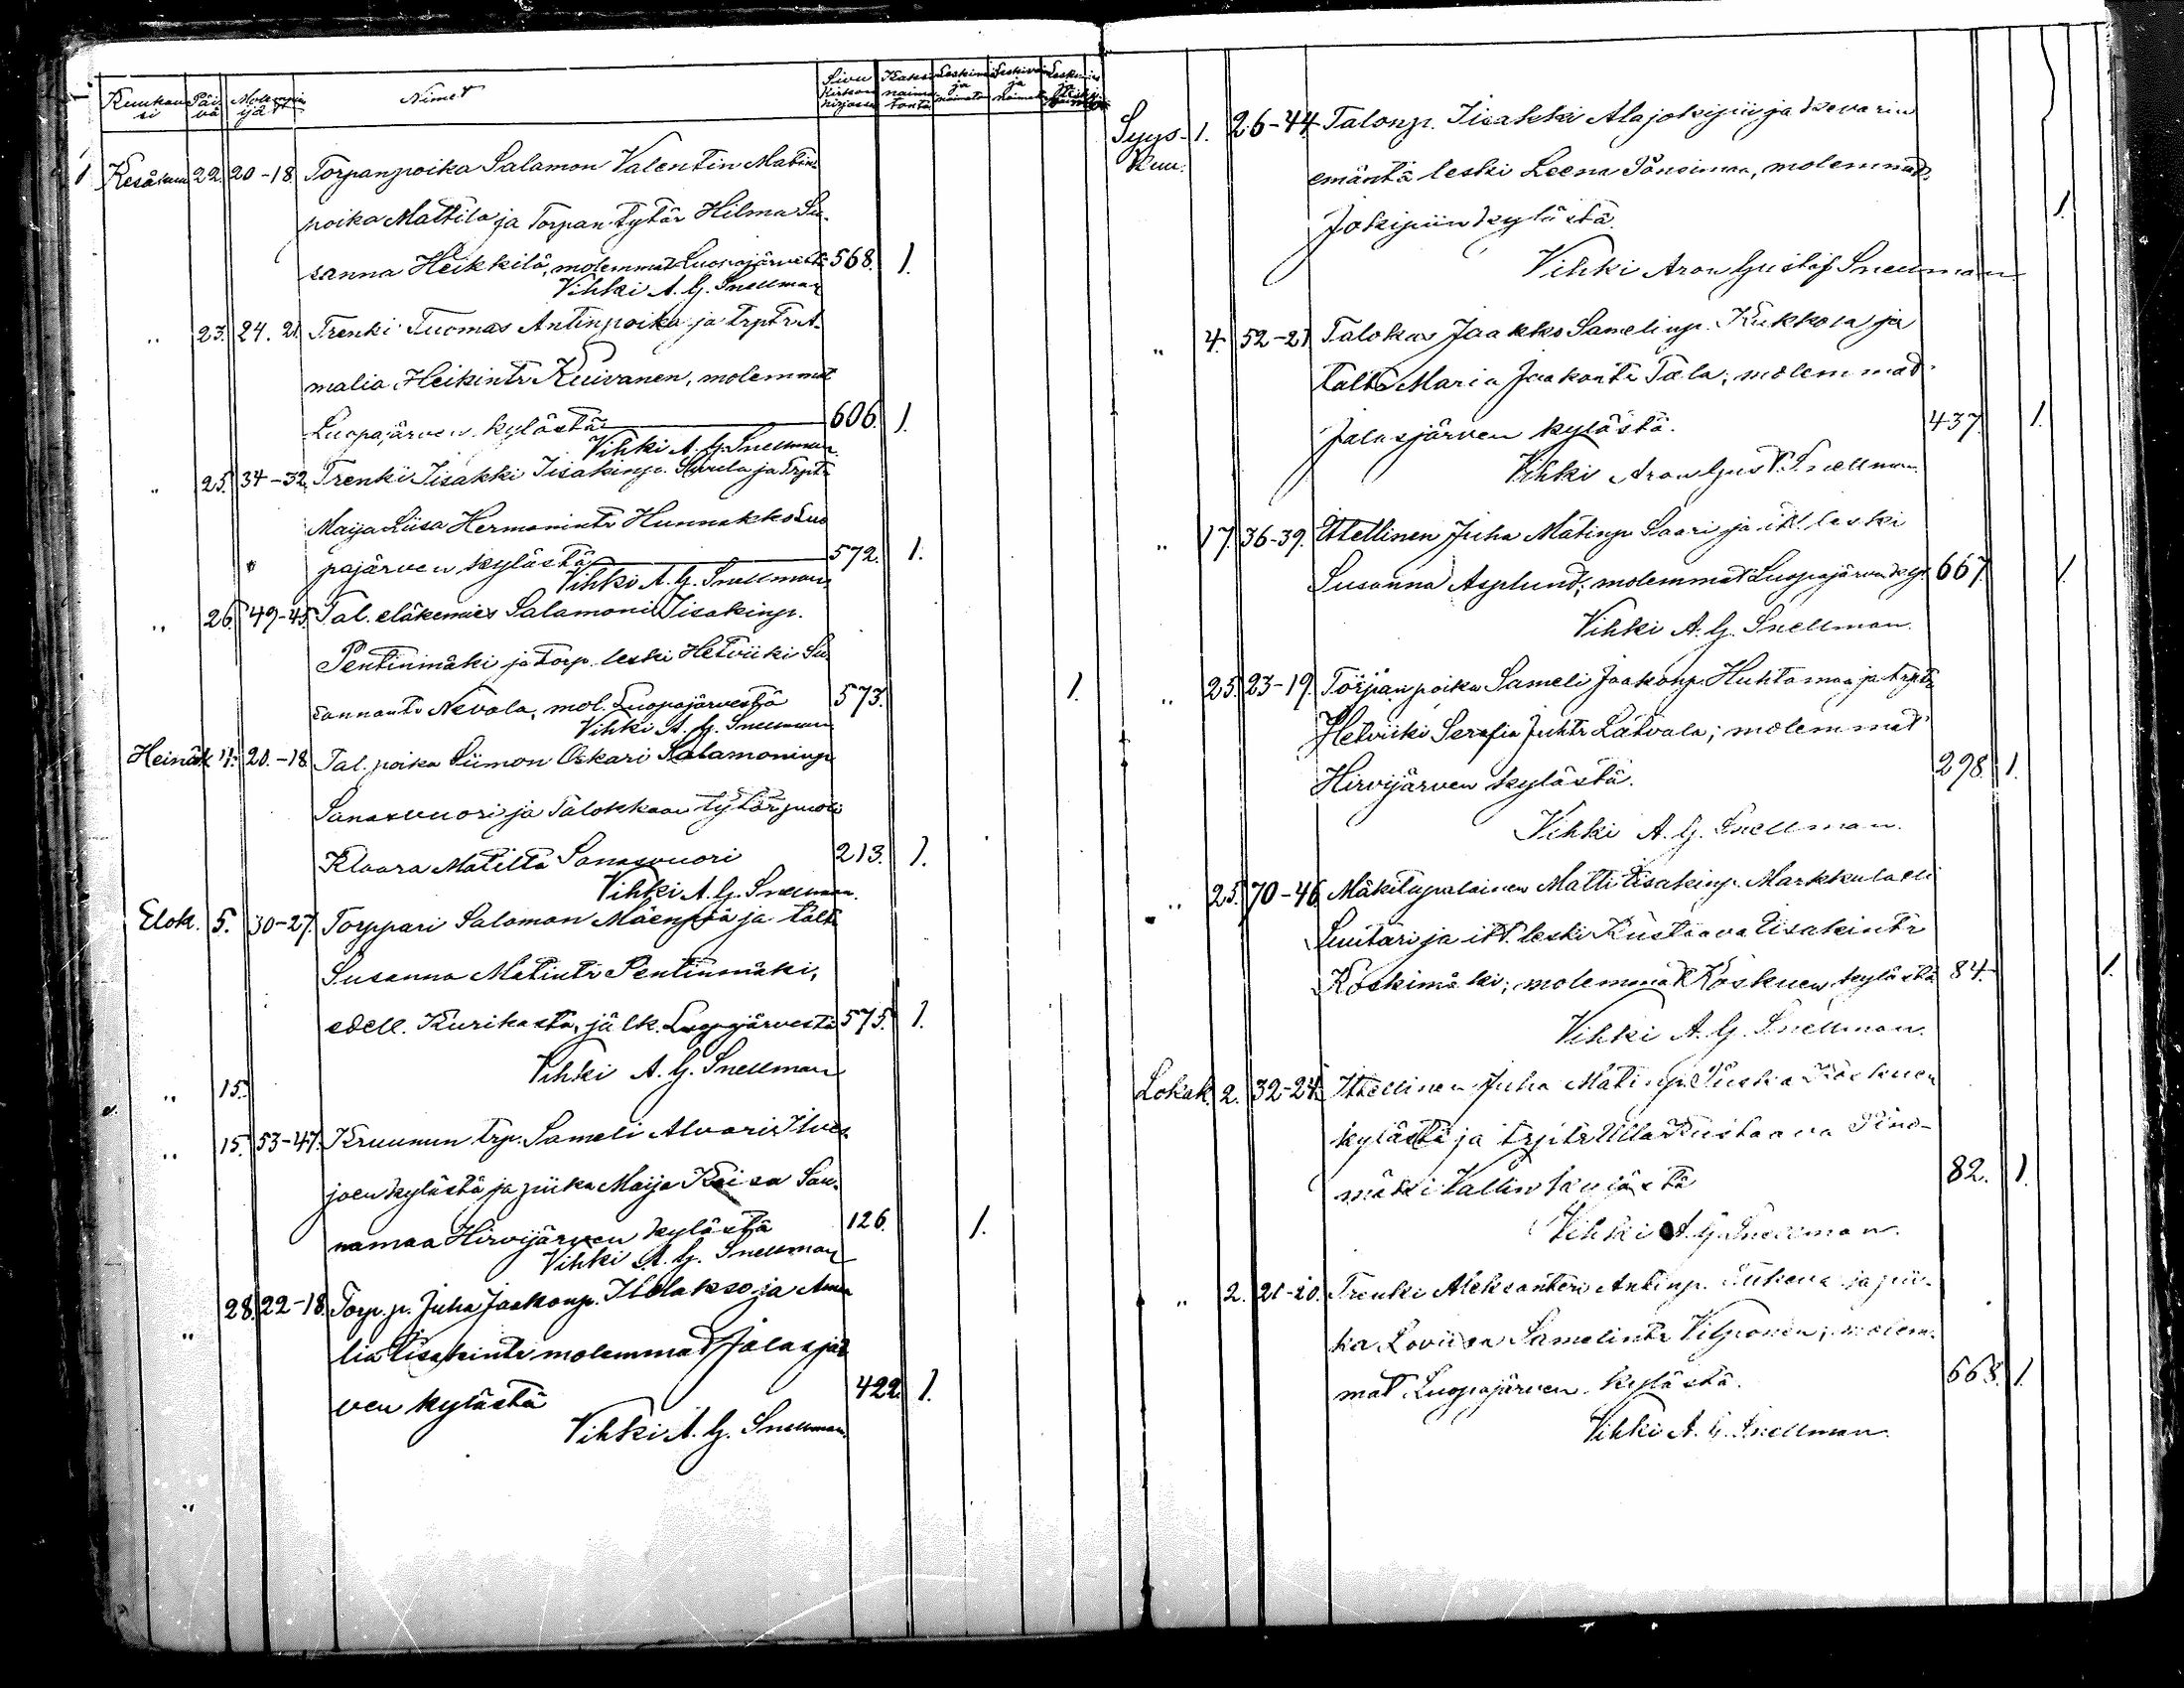 Kuukausi Päivä Molempia ijät Nimet Sivu kirkonkirjassa Kaksi naimatonta Leskimies ja naimaton Leskivaimo ja naimaton Leskimies ja leskivaimo
Kesäkuu 22. 20-18. Torpanpoika Salamon Valentin Matin
poika Mattila ja Torpan tytär Hilma Su-
sanna Heikkilä, molemmat Luopajärveltä 568. 1.
Vihki A. G. Snellman
„ 23. 24. 21. Trenki Tuomas Antinpoika ja trptr A-
malia Heikintr Kuivanen, molemmat
Luopajärven kylästä 606. 1.
Vihki A. G. Snellman
„ 25. 34-32. Trenki Iisakki Iisakinp. ja Trptr
Maija Liisa Hermanintr Hunnakko Luo
pajärven kylästä 572. 1.
Vihki A. G. Snellman
„ 26. 49-45. Tal. eläkemies Salamoni Iisakinp.
Pentinmäki ja Torp. leski Hetviiki Su-
sannantr Nevala, mol. Luopajärvestä 573. 1.
Vihki A. G. Snellman
Heinäk 4. 20.-18. Tal. poika Siimon Oskari Salamoninp
Sanasvuori ja Talokkaan tytärpuoli
Klaara Matilta Sanasvuori 213. 1.
Vihki A. G. Snellman.
Elok. 5. 30-27. Torppari Salomon Mäenpää ja taltr
Susanna Matintr Pentinmäki,
edell. Kurikasta, jälk. Luopajärvestä 575. 1.
Vihki A. G. Snellman
„ 15.
„ 15. 53-47. Kruunun trp. Sameli Alvari Ilves-
joen kylästä ja piika Maija Kaisa San-
namaa Hirvijärven kylästä 126. 1.
Vihki A. G. Snellman
„ 28. 22-18. Torp. p. Juha Jaakonp. Ylilakso ja Ama
lia Iisakintr molemmat Jalasjär
ven kylästä 422. 1.
Vihki A. G. Snellman.
„
Syys- 1. 26-44. Talonp. Iisakki Alajokipii ja
Kuu. emäntä leski Leena molemmat
Jokipiin kylästä. 1.
Vihki Aron Gustaf Snellman
„ 4. 52-21 Talokas Jaakko Samelinp. Kukkola ja
taltr Maria Jaakontr Tala; molemmat
Jalasjärven kylästä. 437. 1.
Vihki Aron Gust. Snellman.
„ 17. 36-39. Itellinen Juha Matinp Saari ja itl. leski
Susanna Asplund; molemmat Luopajärven kyl. 667. 1.
Vihki A. G. Snellman.
„ 25. 23-19. Torpan poika Sameli Jaakonp. Huhtamaa ja trptr
Hetviiki Serafia Juhtr Latvala; molemmat
Hirvijärven kylästä. 298. 1.
Vihki A. G. Snellman.
„ 25. 70-46. Mäkitupalainen Matti Iisakinp. Markkula eli
Suutari ja itl. leski Kustaava Iisakintr
Koskimäki; molemmat Koskuen kylästä 84. 1.
Vihki A. G. Snellman.
Lokak. 2. 32-24. Itsellinen Juha Matinp. Koskuen
kylästä ja trptr Ulla Kustaava Pino-
mäki Vallin kylästä 82. 1.
Vihki A. G. Snellman.
„ 2. 21-20. Trenki Aleksanteri Antinp. ja pii-
ka Loviisa Samelintr Vilponen; molem-
mat Luopajärven kylästä. 668. 1.
Vihki A. G. Snellman.